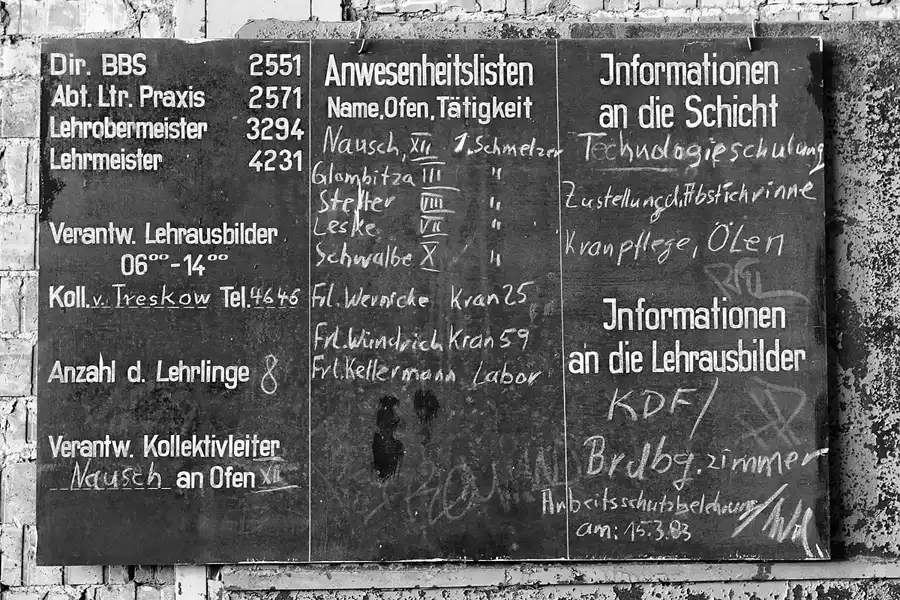 Dir. BBS 2551
Abt. Ltr. Praxis 2571
Lehrobermeister 3294
Lehrmeister 4231
Verantw. Lehrausbilder
06⁰⁰-14⁰⁰
Koll. v. Treskow Tel. 4646
Anzahl d. Lehrlinge 8
Verantw. Kollektivleiter
Nausch an Ofen XII
Anwesenheitslisten
Name, Ofen, Tätigkeit
Nausch, XII 1. Schmelzer
Glombitza III "
Stelter VIII "
Leske VII "
Schwalbe X "
Frl. Wernicke Kran 25
Frl. Wündrich Kran 59
Frl. Kellermann Labor
Informationen
an die Schicht
Technologieschulung
Zustellung d. Abstichrinne
Kranpflege, Ölen
Informationen
an die Lehrausbilder
KDF/
Brdbg. zimmer
Arbeitsschutzbelehrung
am: 15.3.83